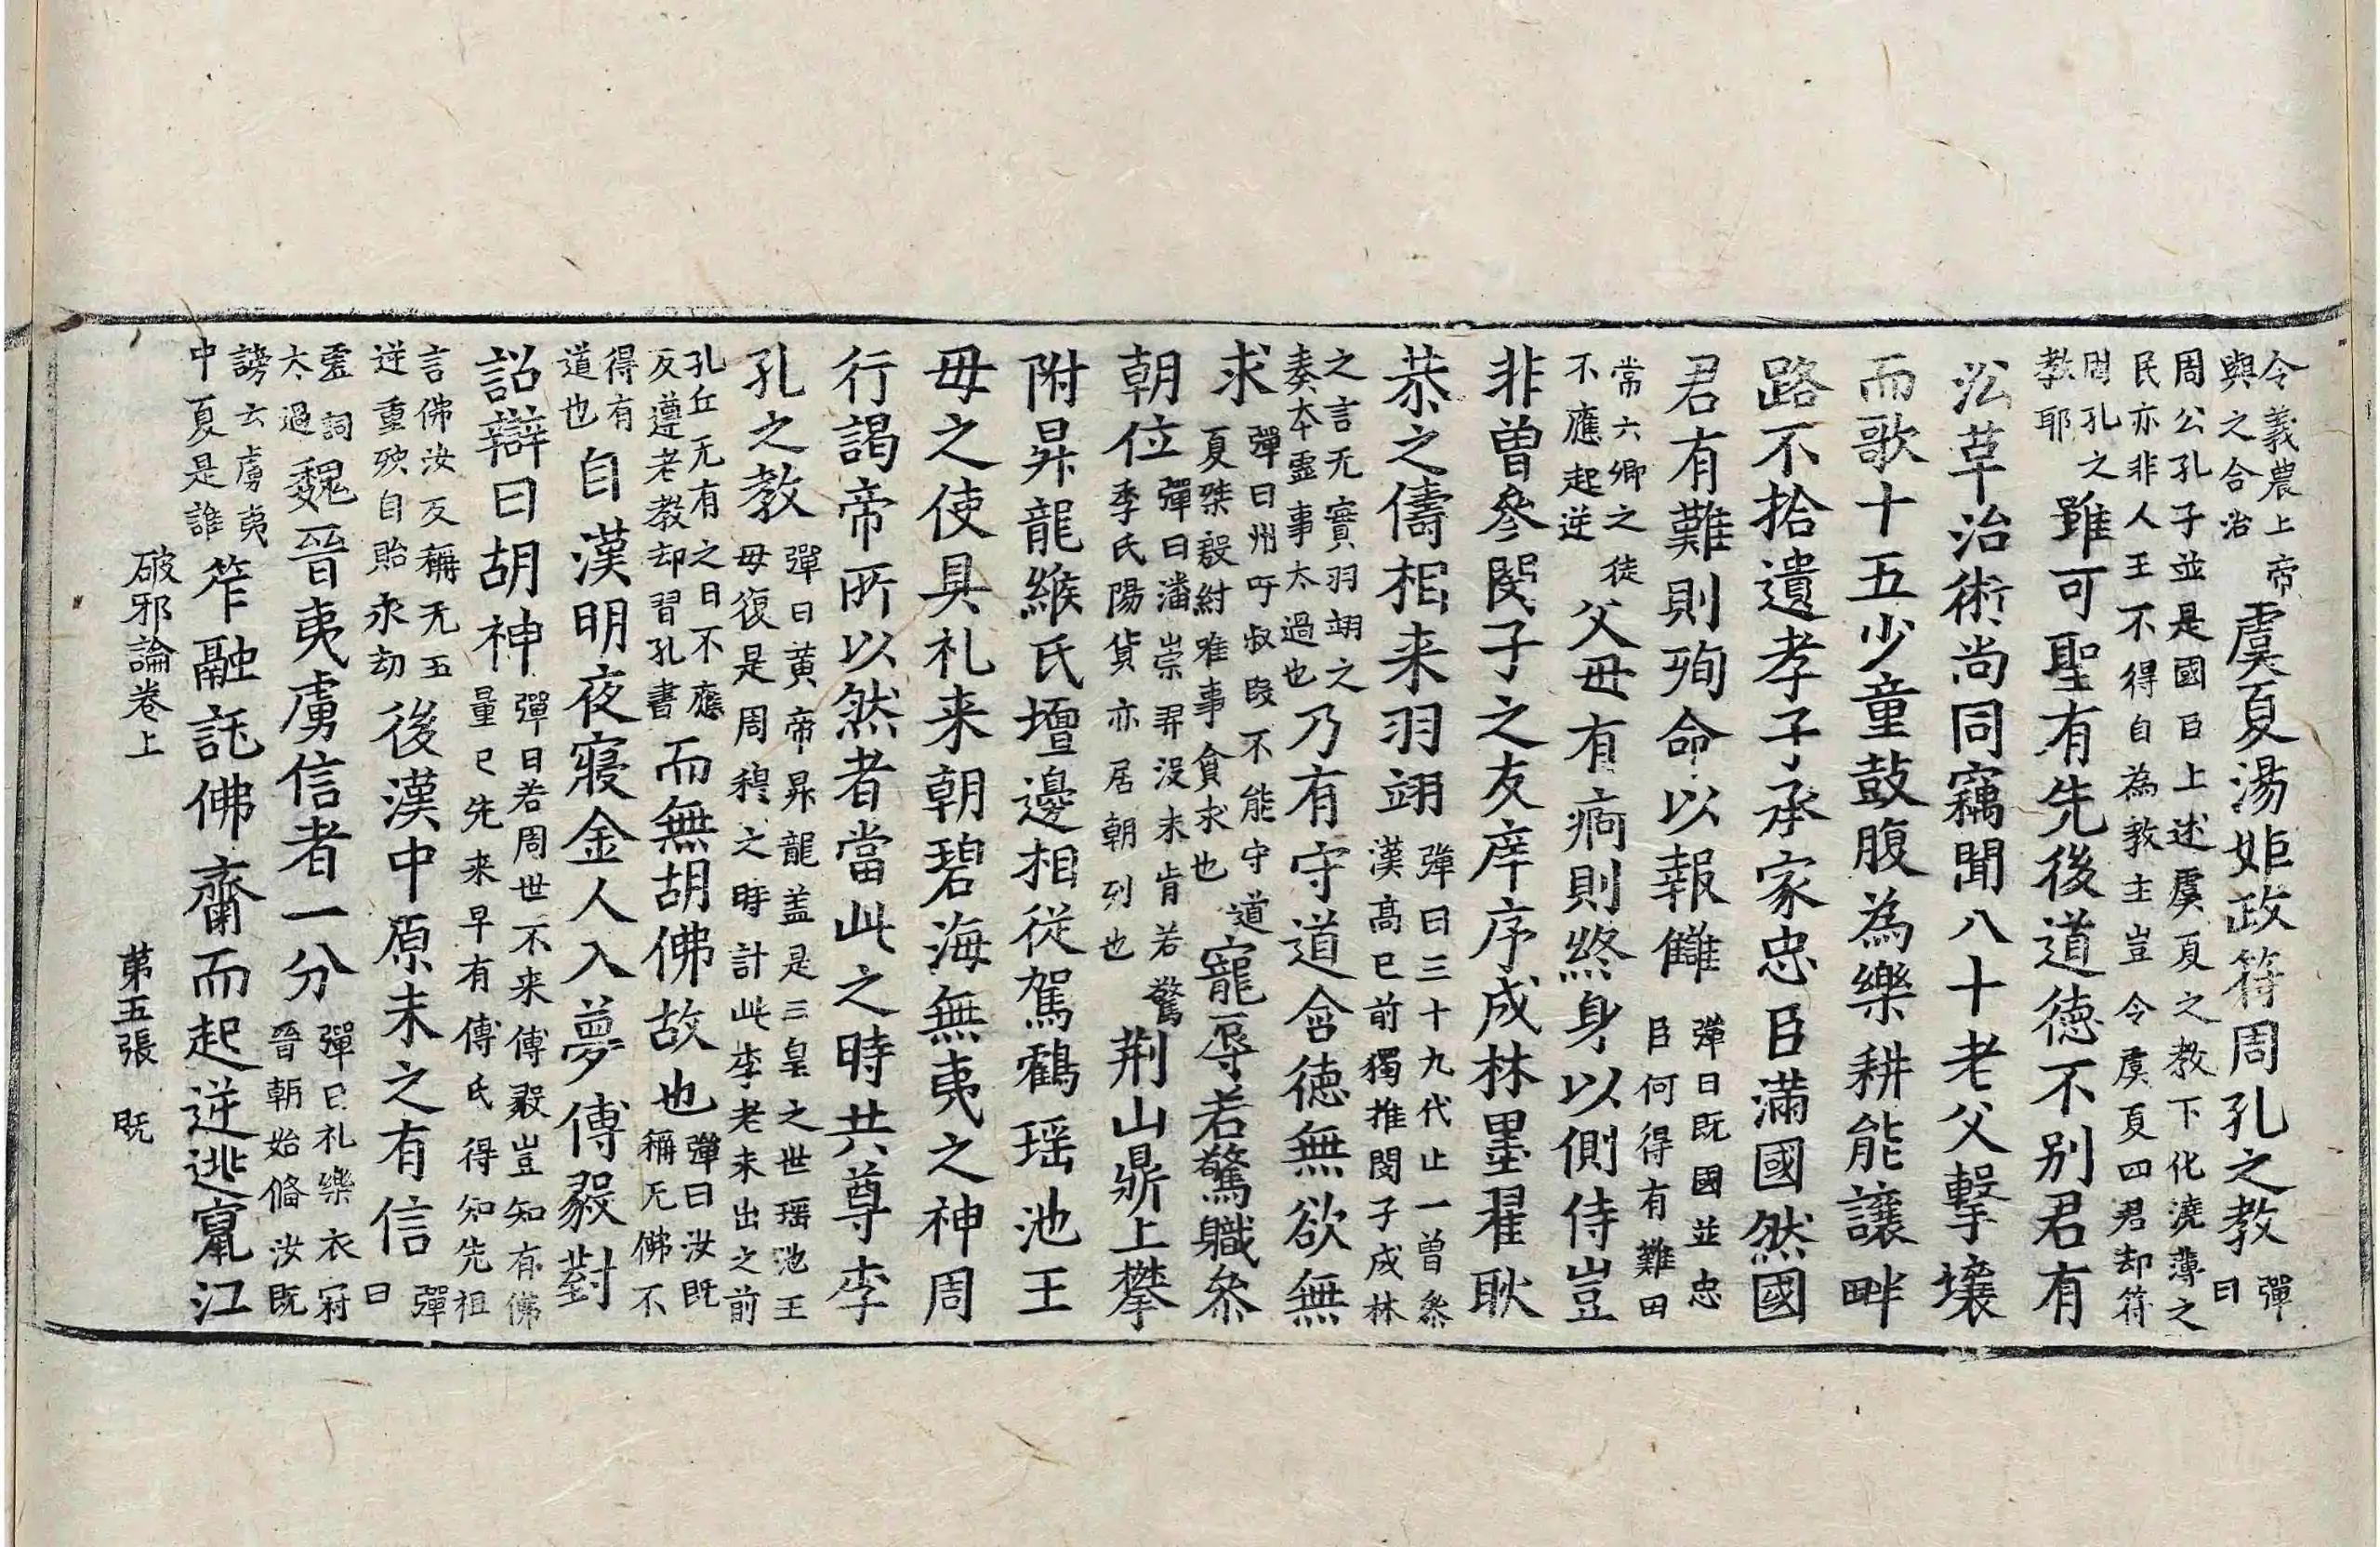 令義農上帝與之合治虞夏湯姬政符周孔之教彈曰
周公孔子並是國臣上述虞夏之教下化澆薄之民亦非人王不得自為教主豈令虞夏四君却符
周孔之教耶雖可聖有先後道德不別君有
㳂草治術尚同竊聞八十老父擊壤
而歌十五少童鼓腹為樂耕能讓畔
路不拾遺孝子承家忠臣滿國然國
君有難則殉命以報讎彈曰既國並忠臣何得有難田
常六卿之徒不應起逆父母有痾則終身以側侍豈
非曾參閔子之友庠序成林墨翟耿
恭之儔相来羽翊彈曰三十九代止一曾叅漢高已前獨推閔子成林
之言无實羽翊之奏本虛事太過也乃有守道含德無欲無
求彈曰州吁叔段不能守道夏桀殷紂唯事貪求也寵辱若驚職叅
朝位彈曰潘崇羿浞未肯若驚季氏陽貨亦居朝列也荆山鼎上攀
附昇龍緱氏壇邊相從駕鶴瑶池王
母之使具礼来朝碧海無夷之神周
行謁帝所以然者當此之時共尊李
孔之教彈曰黄帝昇龍盖是三皇之世瑶池王母復是周穆之時計此李老未出之前
孔丘无有之日不應反遵老教却習孔書而無胡佛故也彈曰汝既稱无佛不
得有道也自漢明夜寢金人入夢傅毅對
詔辯曰胡神彈曰若周世不来傅毅豈知有佛量已先来早有傅氏得知先祖
言佛汝反稱无五逆重殃自貽永劫後漢中原未之有信彈曰
虛詞太過魏晉夷虜信者一分彈曰礼樂衣冠晉朝始脩汝既
謗云虜夷中夏是誰笮融託佛齋而起逆逃竄江
破邪論卷上 第五張 既